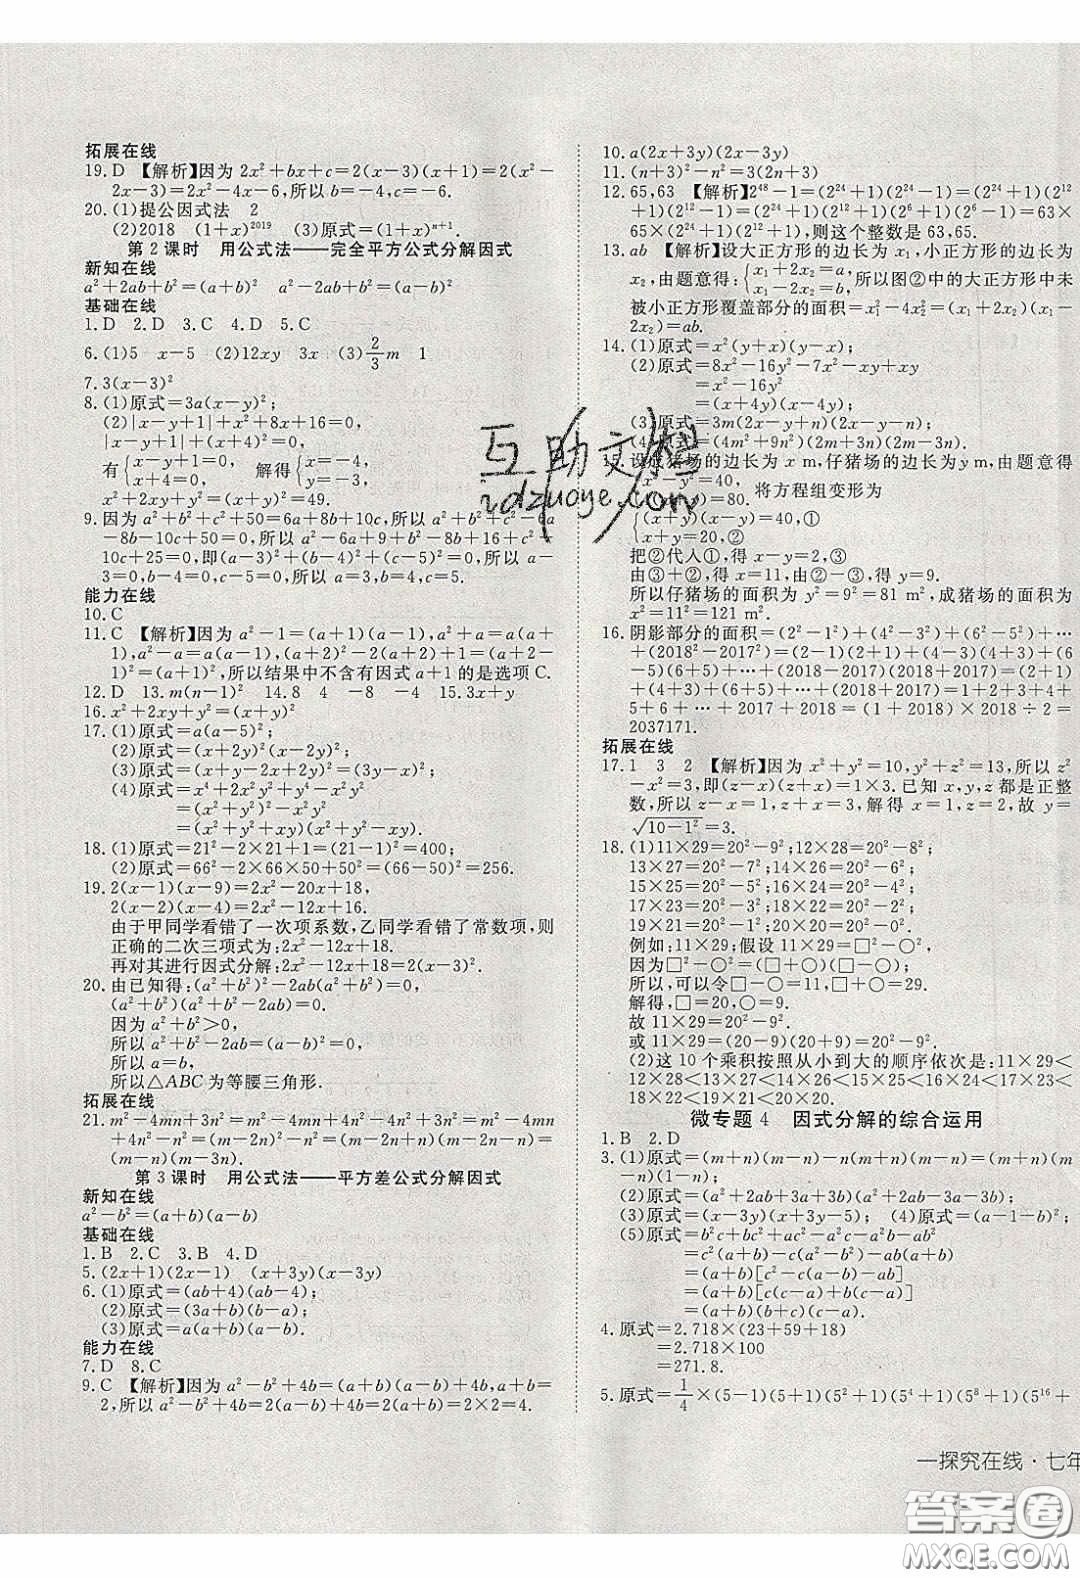 拓展在线
19.D 【解析】因为 2x²+bx+c=2(x-3)(x+1)=2(x²-
2x-3)=2x²-4x-6,所以 b=-4,c=-6.
20.(1)提公因式法 2
(2)2018 (1+x)²⁰¹⁹ (3)原式=(1+x)ⁿ⁺¹.
第 2 课时 用公式法——完全平方公式分解因式
新知在线
a²+2ab+b²=(a+b)² a²-2ab+b²=(a-b)²
基础在线
1.D 2.D 3.C 4.D 5.C
6.(1)5 x-5 (2)12xy 3x (3)2/3m 1
7.3(x-3)²
8.(1)原式=3a(x-y)²;
(2)|x-y+1|+x²+8x+16=0,
|x-y+1|+(x+4)²=0.
有{x-y+1=0, x+4=0. 解得{x=-4, y=-3.
x²+2xy+y²=(x+y)²=49.
9.因为 a²+b²+c²+50=6a+8b+10c,所以 a²+b²+c²-6a
-8b-10c+50=0,所以 a²-6a+9+b²-8b+16+c²-
10c+25=0,即(a-3)²+(b-4)²+(c-5)²=0,所以 a-
3=0,b-4=0,c-5=0,所以 a=3,b=4,c=5.
能力在线
10.C
11.C 【解析】因为 a²-1=(a+1)(a-1),a²+a=a(a+
1),a²-a=a(a-1),(a+2)²-2(a+2)+1=(a+2-
1)²=(a+1)²,所以结果中不含有因式 a+1 的是选项 C.
12.D 13.m(n-1)² 14.8 4 -8 -4 15.3x+y
16.x²+2xy+y²=(x+y)²
17.(1)原式=a(a-5)²;
(2)原式=(x+2y)²(x-2y)²;
(3)原式=(a+b)²(a-b)²;
(4)原式=x⁴+2x²y²+y⁴-x²y²
=(x²+y²)²-x²y²
=(x²+y²+xy)(x²+y²-xy).
18.(1)原式=21²-2×21+1=(21-1)²=400;
(2)原式=66²-2×66×50+50²=(66-50)²=256.
19.2(x-1)(x-9)=2x²-20x+18,
2(x-2)(x-4)=2x²-12x+16.
由于甲同学看错了一次项系数,乙同学看错了常数项,则
正确的二次三项式为:2x²-12x+18.
再对其进行因式分解:2x²-12x+18=2(x-3)².
20.由已知得:(a²+b²)²-2ab(a²+b²)=0,
(a²+b²)(a²+b²-2ab)=0.
因为 a²+b²>0,
所以 a²+b²-2ab=(a-b)²=0,
所以 a=b,
所以△ABC 为等腰三角形.
拓展在线
21.m²-4mn+3n²=m²-4mn+3n²+n²-n²=m²-4mn
+4n²-n²=(m-2n)²-n²=(m-2n+n)(m-2n-n)=
(m-n)(m-3n).
第 3 课时 用公式法——平方差公式分解因式
新知在线
a²-b²=(a+b)(a-b)
基础在线
1.B 2.C 3.B 4.D
5.(2x+1)(2x-1) (x+3y)(x-3y)
6.(1)原式=(ab+4)(ab-4);
(2)原式=(3a+b)(a-b);
(3)原式=(a²+b²)(a+b)(a-b).
能力在线
7.D 8.C
9.C 【解析】因为 a²-b²+4b=(a+b)(a-b)+4b,a+b=
2,所以 a²-b²+4b=2(a-b)+4b=2(a+b)=2×2=4.
10.a(2x+3y)(2x-3y)
11.(n+3)²-n²=3(2n+3)
12.65,63 【解析】2⁴⁸-1=(2²⁴+1)(2²⁴-1)=(2²⁴+1)(2¹²
+1)(2¹²-1)=(2²⁴+1)(2¹²+1)(2⁶+1)(2⁶-1)=63×
65×(2²⁴+1)(2¹²+1),则这个整数是 63,65.
13.ab 【解析】设大正方形的边长为 x₁,小正方形的边长为
x₂,由题意得:{x₁+2x₂=a, x₁-2x₂=b. 所以图②中的大正方形中未
被小正方形覆盖部分的面积=x₁²-4x₂²=(x₁+2x₂)(x₁-
2x₂)=ab.
14.(1)原式=x²(y+x)(y-x);
(2)原式=8x²-16y²-7x²-xy+xy
=x²-16y²
=(x+4y)(x-4y);
(3)原式=3m(2x-y+n)(2x-y-n);
(4)原式=(4m²+9n²)(2m+3n)(2m-3n).
15.设成猪场的边长为 x m,仔猪场的边长为 y m,由题意得
{x²-y²=40, 4(x+y)=80. 将方程组变形为
{(x+y)(x-y)=40,① x+y=20,②
把②代入①,得 x-y=2,③
由③+②,得 x=11,由②-③,得 y=9.
所以仔猪场的面积为 y²=9²=81 m²,成猪场的面积为
x²=11²=121 m².
16.阴影部分的面积=(2²-1²)+(4²-3²)+(6²-5²)+…
+(2018²-2017²)=(2-1)(2+1)+(4-3)(4+3)+(6
-5)(6+5)+…+(2018-2017)(2018+2017)=(2+1)
+(4+3)+(6+5)+…+(2018+2017)=1+2+3+4+
5+6+…+2017+2018=(1+2018)×2018÷2=
2037171.
拓展在线
17.1 3 2 【解析】因为 x²+y²=10,y²+z²=13,所以 z²
-x²=3,即(z-x)(z+x)=1×3.已知 x,y,z 都是正整
数,所以 z-x=1,z+x=3,解得 x=1,z=2,故 y=
√(10-1²)=3.
18.(1)11×29=20²-9²;12×28=20²-8²;
13×27=20²-7²;14×26=20²-6²;
15×25=20²-5²;16×24=20²-4²;
17×23=20²-3²;18×22=20²-2²;
19×21=20²-1²;20×20=20²-0².
例如:11×29;假设 11×29=□²-○²,
因为□²-○²=(□+○)(□-○).
所以,可以令□-○=11,□+○=29.
解得,□=20,○=9.
故 11×29=20²-9².
或 11×29=(20-9)(20+9)=20²-9².
(2)这 10 个乘积按照从小到大的顺序依次是:11×29<
12×28<13×27<14×26<15×25<16×24<17×23<
18×22<19×21<20×20.
微专题 4 因式分解的综合运用
1.B 2.D
3.(1)原式=(m+n)(m-n)-n(m-n)=(m-n)(m+n-
n)(1-n);
(2)原式=(a²+2ab+3a+b)(a²+2ab-3a-3b);
(3)原式=(x-3y)(x-3y); (4)原式=(a-1-b)²;
(5)原式=b²c+bc²+ac²-a²c-a²b-ab²
=c²(a+b)-c(a²-b²)-ab(a+b)
=(a+b)[c²-c(a-b)-ab]
=(a+b)[c(c-a)+b(c-a)]
=(a+b)(b+c)(c-a).
4.原式=2.718×(23+59+18)
=2.718×100
=271.8.
5.原式=1/4×(5-1)(5+1)(5²+1)(5⁴+1)(5⁸+1)(5¹⁶+
一探究在线·七年
互助文档
zuoye.com
答案圈
MXQE.COM